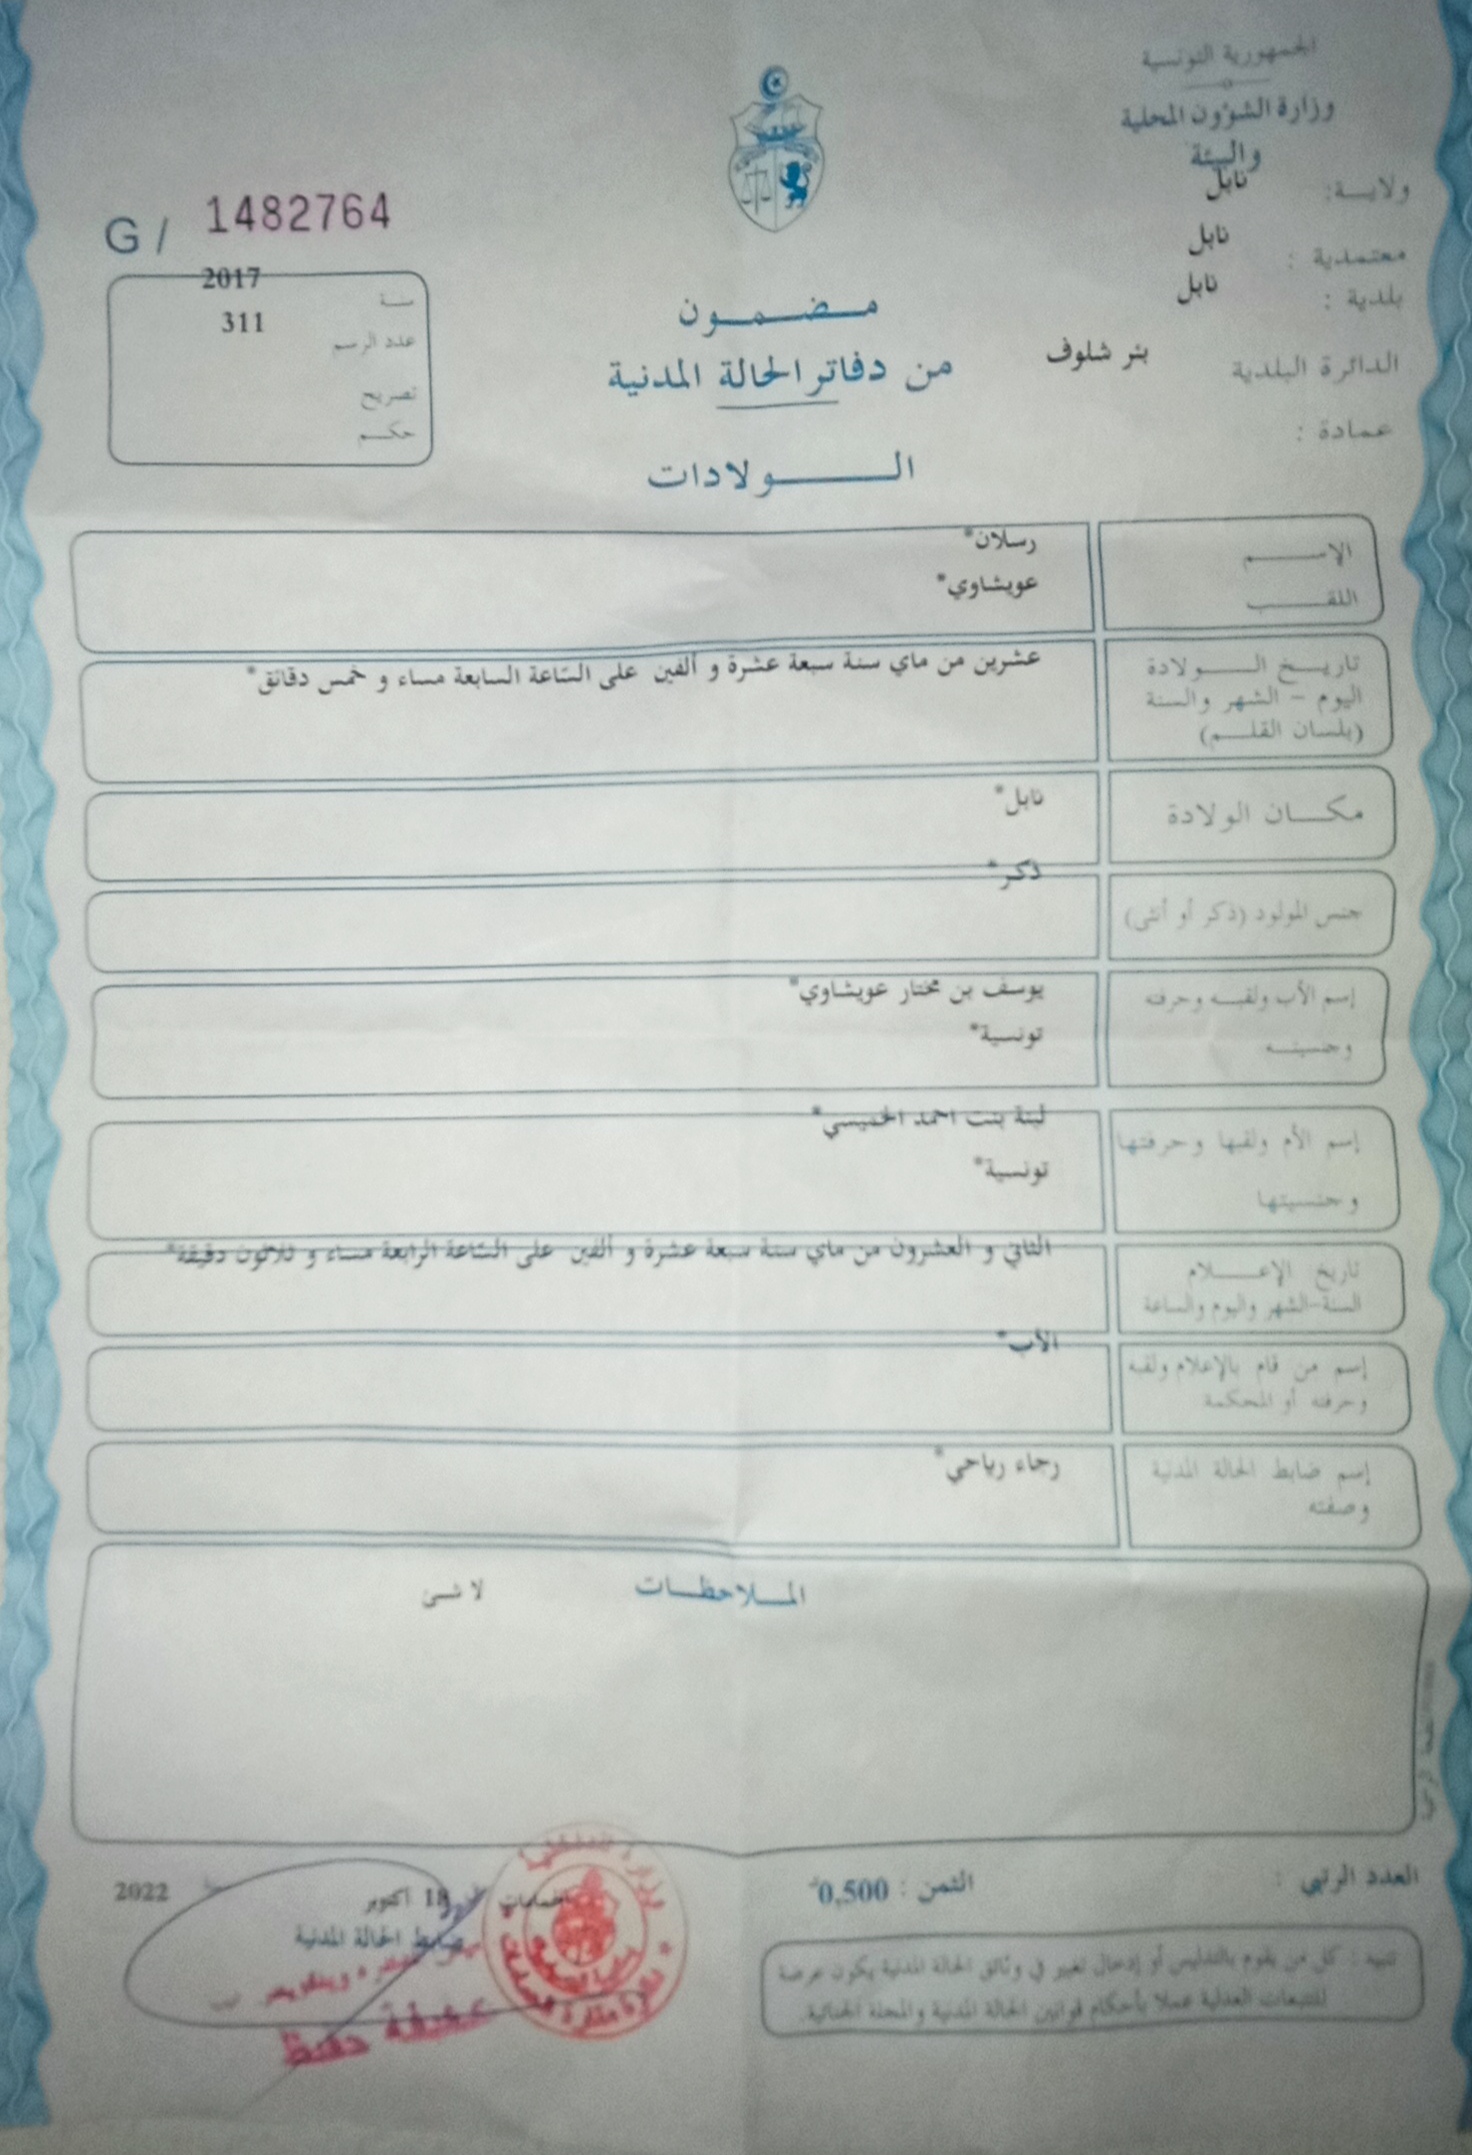 الجمهورية التونسية
وزارة الشؤون المحلية
والبيئة
ولايـــة: نابل
معتمدية : نابل
بلدية : نابل
الدائرة البلدية بئر شلوف
عمادة :
G / 1482764
سنة 2017
عدد الرسم 311
تصريح
حكـــم
مـــضـــمـــون
من دفاتر الحالة المدنية
الـــــولادات
الإســـــم رسلان*
اللقـــــب عويشاوي*
تاريـــخ الـــــولادة عشرين من ماي سنة سبعة عشرة و ألفين على الساعة السابعة مساء و خمس دقائق*
اليوم – الشهر والسنة
(بلسان القلـــم)
مكـــان الولادة نابل*
جنس المولود (ذكر أو أنثى) ذكر*
إسم الأب ولقبـــه وحرفته يوسف بن مختار عويشاوي*
وجنسيتـــه تونسية*
إسم الأم ولقبها وحرفتها لبنة بنت احمد الخميسي*
وجنسيتها تونسية*
تاريخ الإعـــــلام الثاني و العشرون من ماي سنة سبعة عشرة و ألفين على الساعة الرابعة مساء و ثلاثون دقيقة*
السنة-الشهر واليوم والساعة
إسم من قام بالإعلام ولقبه الأب*
وحرفته أو المحكمة
إسم ضابط الحالة المدنية رجاء رياحي*
وصفته
المـــلاحظـــات لا شئ
العدد الرتبي :
الثمن : 0,500
تنبيه : كل من يقوم بالتدليس أو إدخال تغيير في وثائق الحالة المدنية يكون عرضة
للتتبعات العدلية عملا بأحكام قوانين الحالة المدنية والمجلة الجنائية.
18 أكتوبر 2022
ضابط الحالة المدنية